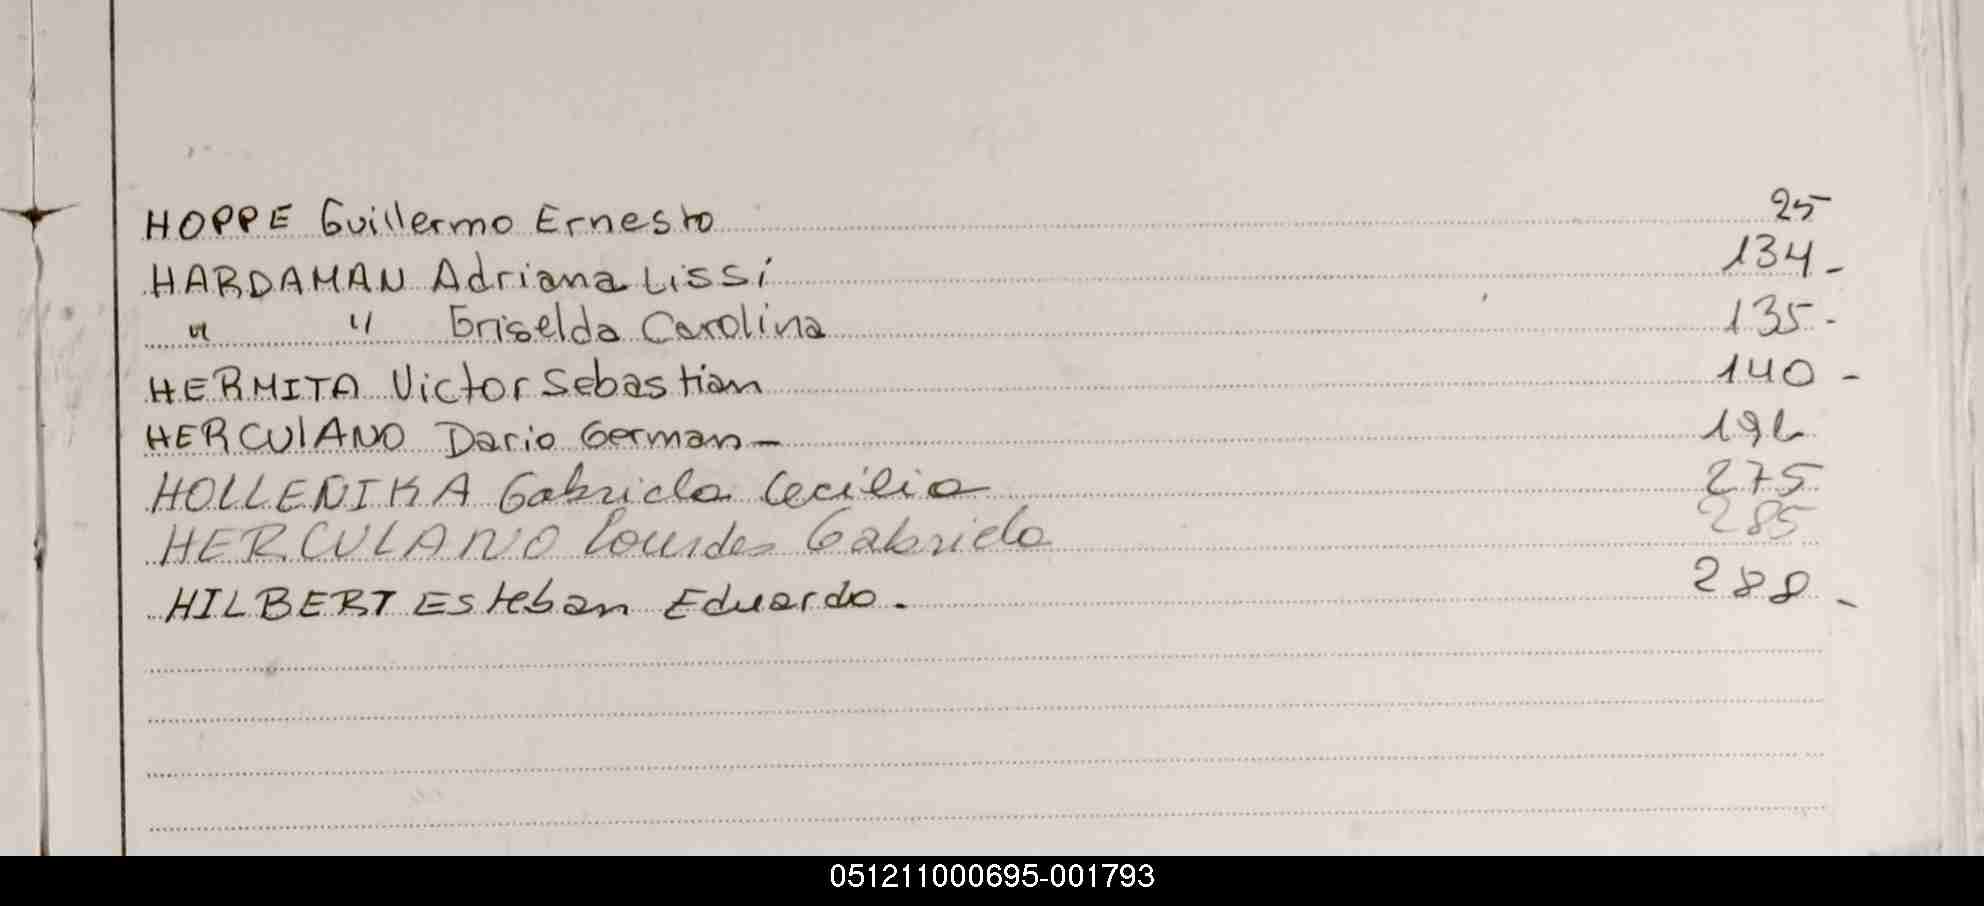 HOPPE Guillermo Ernesto 25
HARDAMAN Adriana Lissi 134-
" " Griselda Carolina 135-
HERMITA Victor Sebastian 140-
HERCULANO Dario German-
HOLLENIKA Gabriela Cecilia 275
HERCULANO Lourdes Gabriela 285
HILBERT Esteban Eduardo. 288-
051211000695-001793